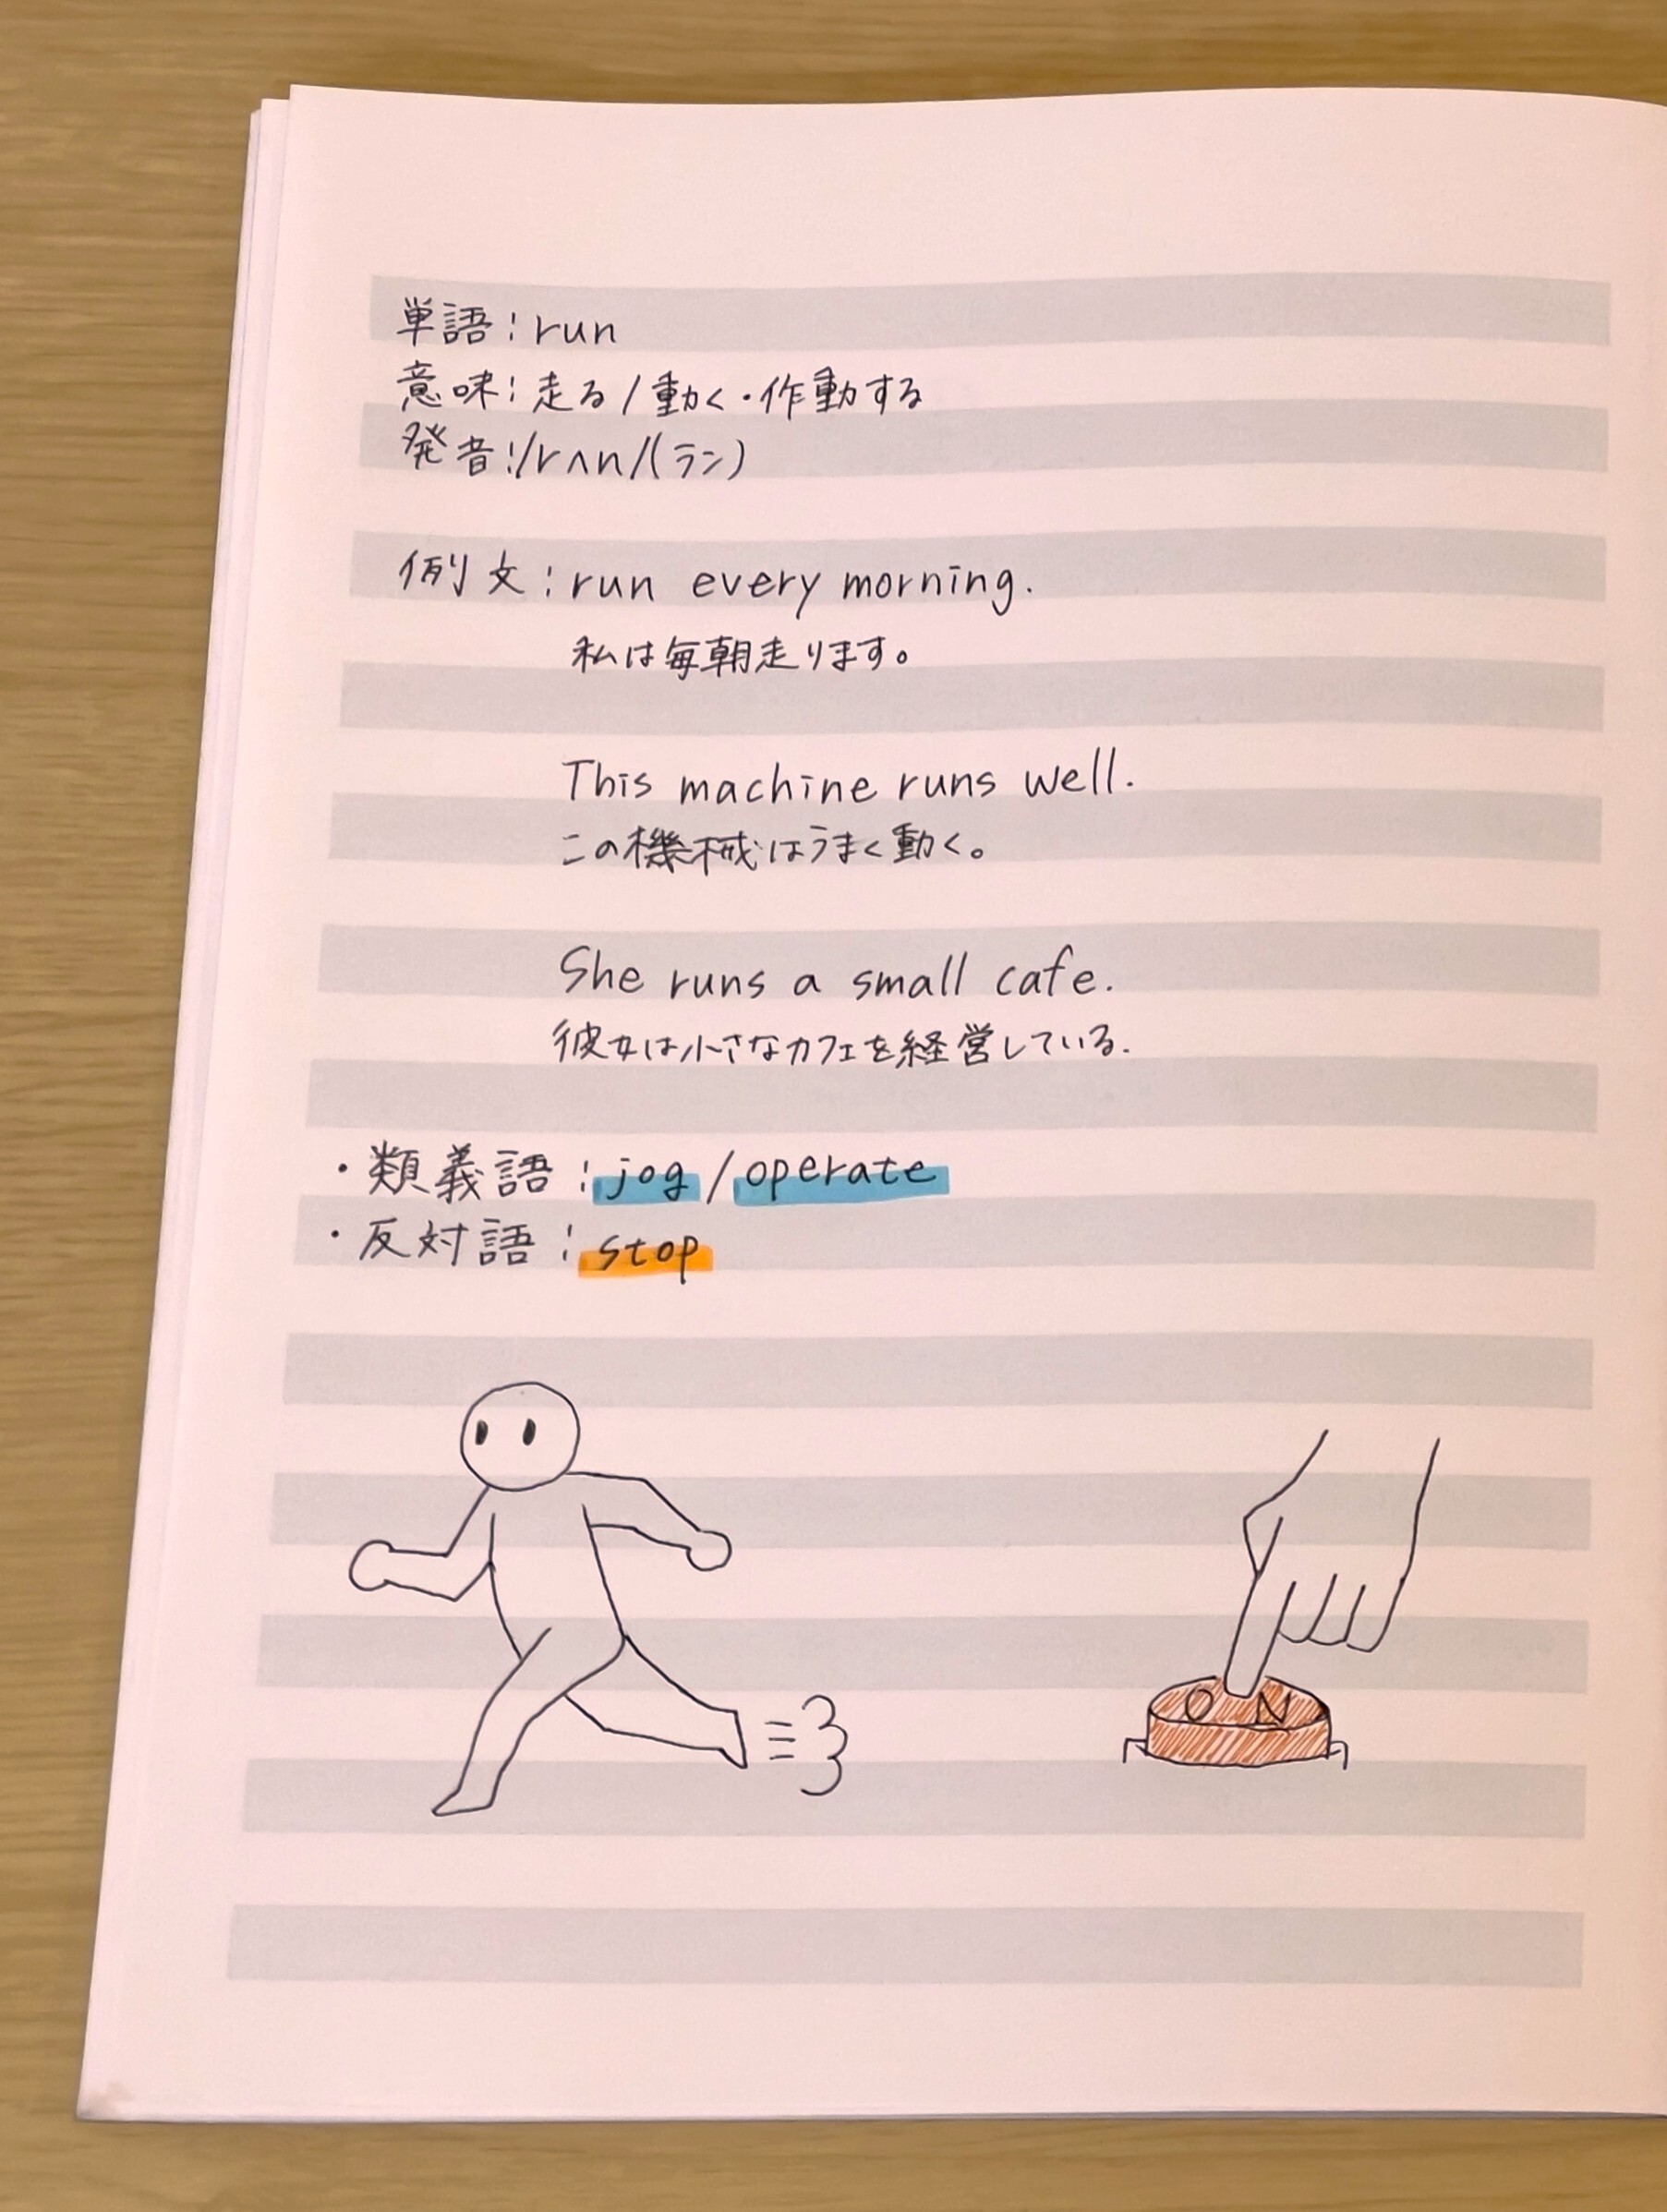 単語：run
意味：走る/動く・作動する
発音：/rʌn/(ラン)
例文：run every morning.
私は毎朝走ります。
This machine runs well.
この機械はうまく動く。
She runs a small cafe.
彼女は小さなカフェを経営している.
・類義語：jog/operate
・反対語：stop
ON